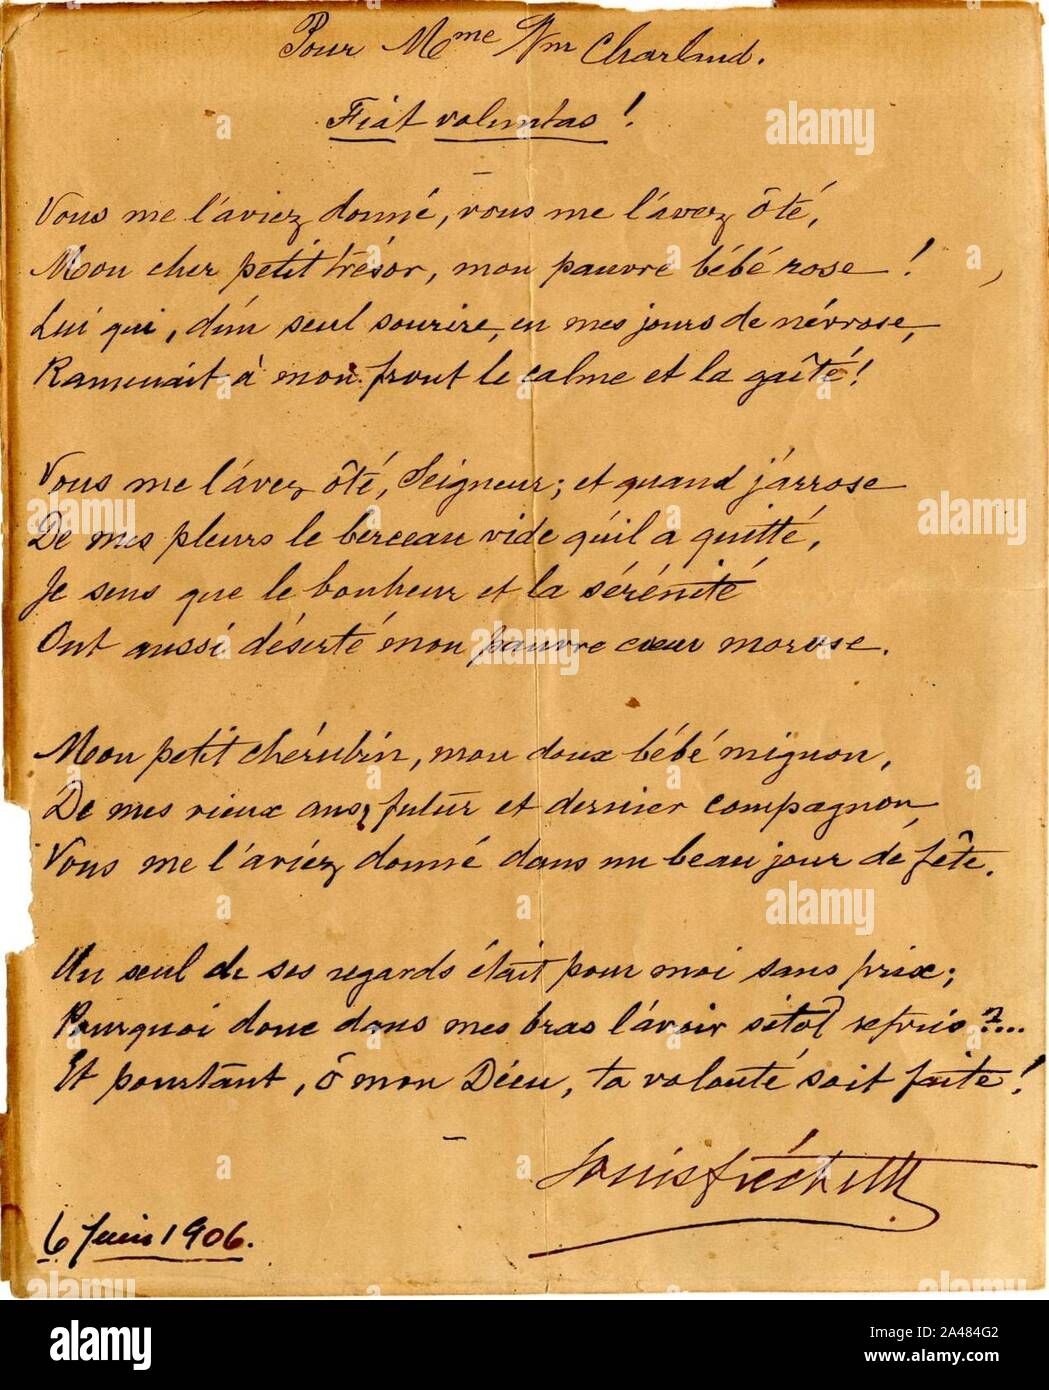 Pour Mme Wm Charland.
Fiat voluntas!
Vous me l'aviez donné, vous me l'avez ôté,
Mon cher petit trésor, mon pauvre bébé rose!
Lui qui, d'un seul sourire, en mes jours de névrose,
Ramenait à mon front le calme et la gaîté!
Vous me l'avez ôté, Seigneur; et quand j'arrose
De mes pleurs le berceau vide qu'il a quitté,
Je sens que le bonheur et la sérénité
Ont aussi déserté mon pauvre cœur morose.
Mon petit chérubin, mon doux bébé mignon,
De mes vieux ans futur et dernier compagnon,
Vous me l'aviez donné dans un beau jour de fête.
Un seul de ses regards était pour moi sans prix;
Pourquoi donc dans mes bras l'avoir sitôt repris?...
Et pourtant, ô mon Dieu, ta volonté soit faite!
Louis Fréchette
6 Juin 1906.
a alamy
alamy
Image ID: 2A484G2
www.alamy.com